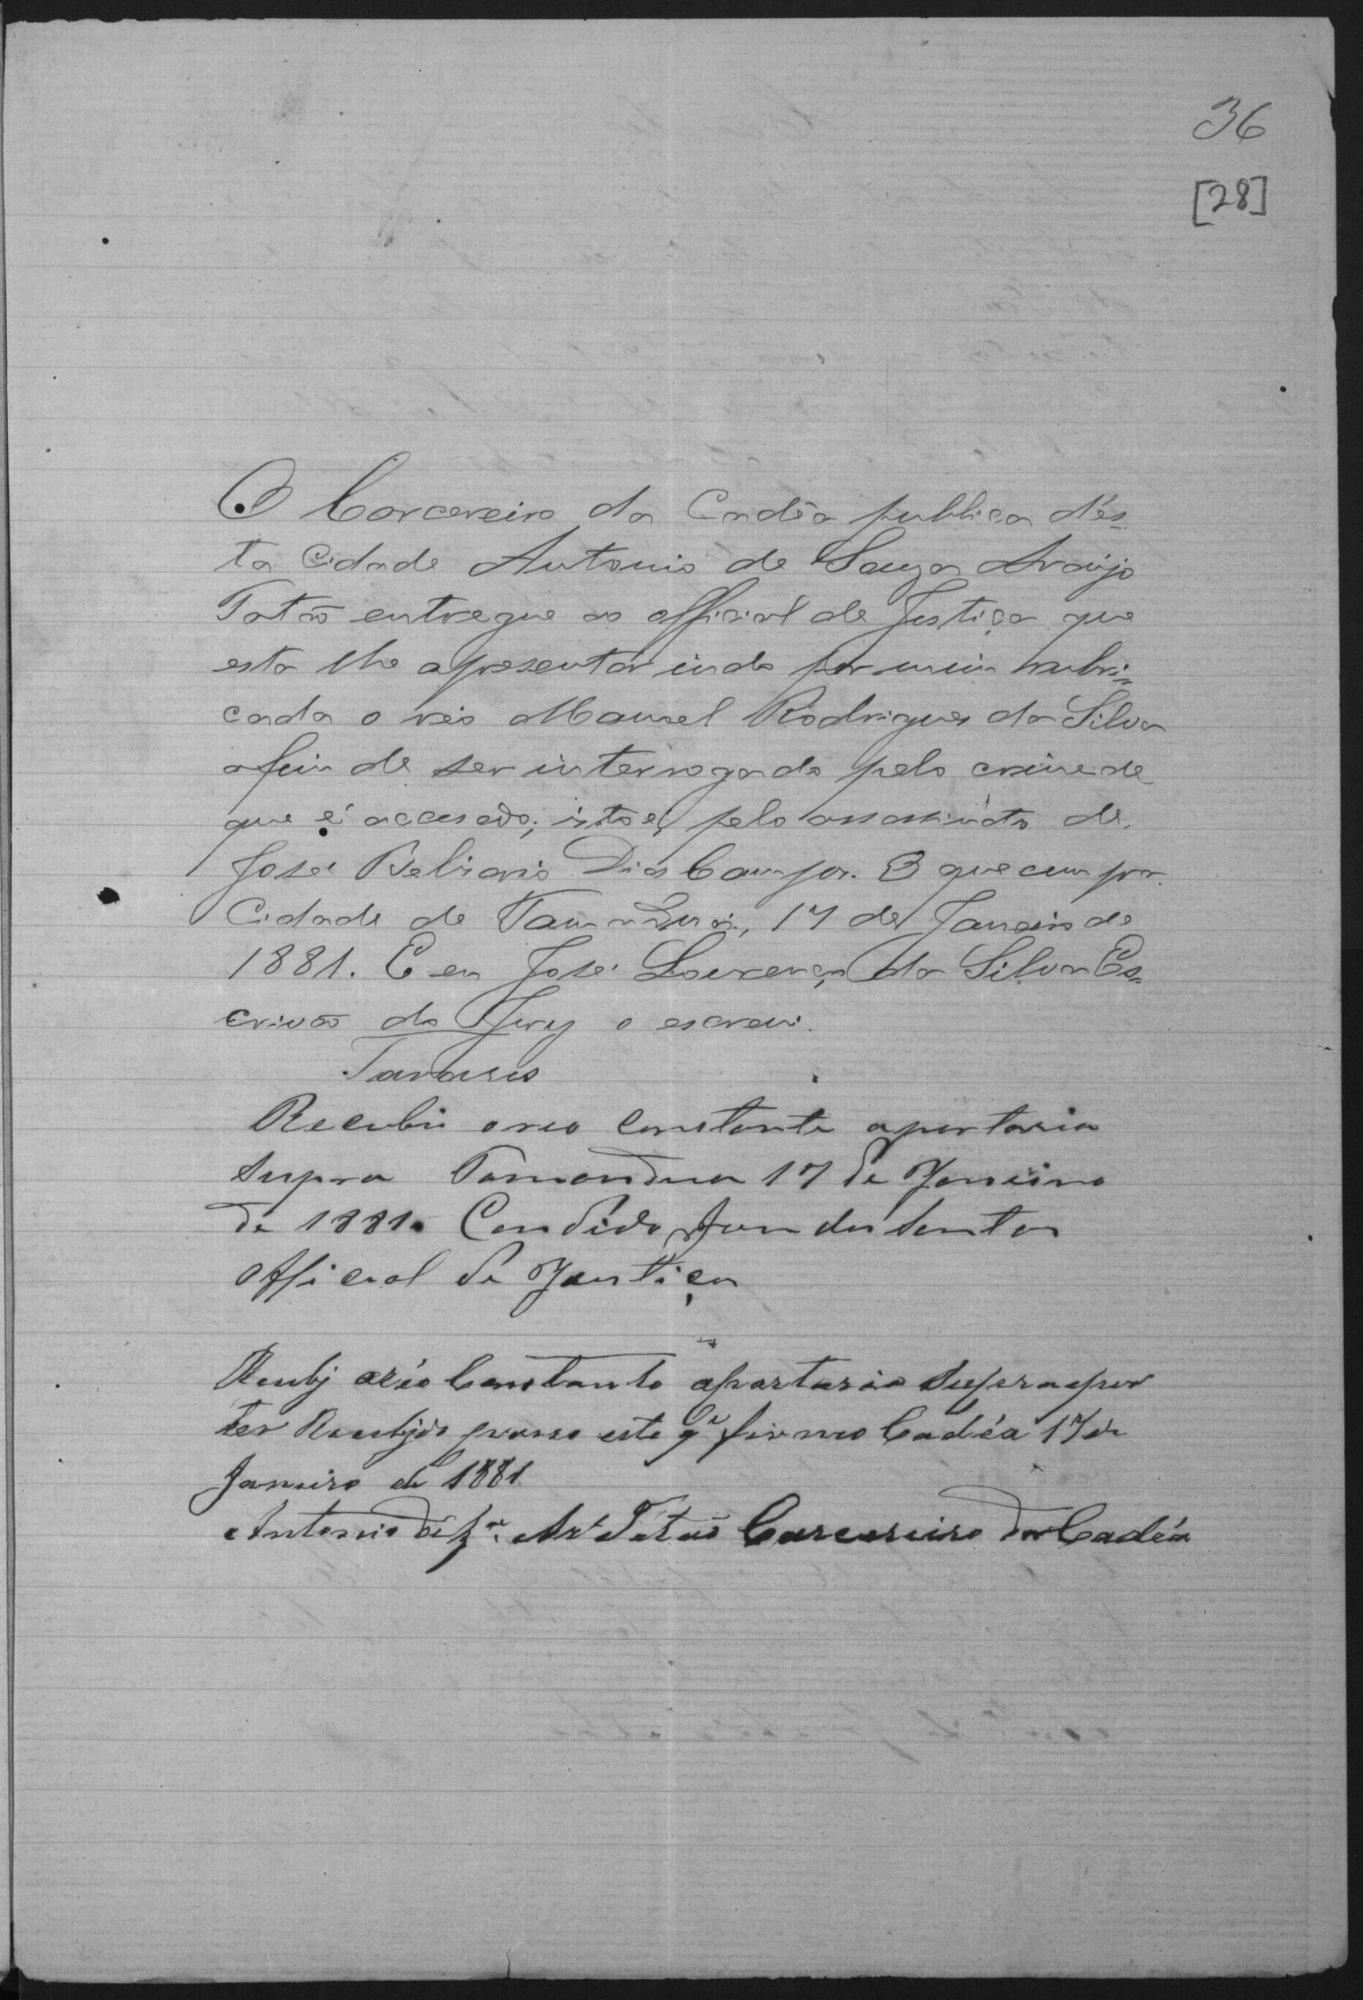 36
[28]
O Carcereiro da Cadêa publica des-
ta Cidade Antonio de Souza Araujo
Tatão entregue ao official de Justiça que
esta lhe apresentar indo por mim rubri=
cada o réo Manoel Rodrigues da Silva
afim de ser interrogado pelo crime de
que é accusado; isto é, pelo assassinato de
José Belisario Dias Campos. O que cumpra.
Cidade de Tamanduá, 17 de Janeiro de
1881. E eu José Lourenço da Silva Es=
crivão do Jury o escrevi.
Tavares
Recebi o reo constante a portaria
supra Tamandua 17 de Janeiro
de 1881. Candido dos Santos
Official de Justiça
Recebj o réo Constante a portaria supra e por
ter Recebjdo passo este qe firmo Cadêa 17 de
Janeiro de 1881
Antonio de Sza. Aro Tatão Carcereiro da Cadêa